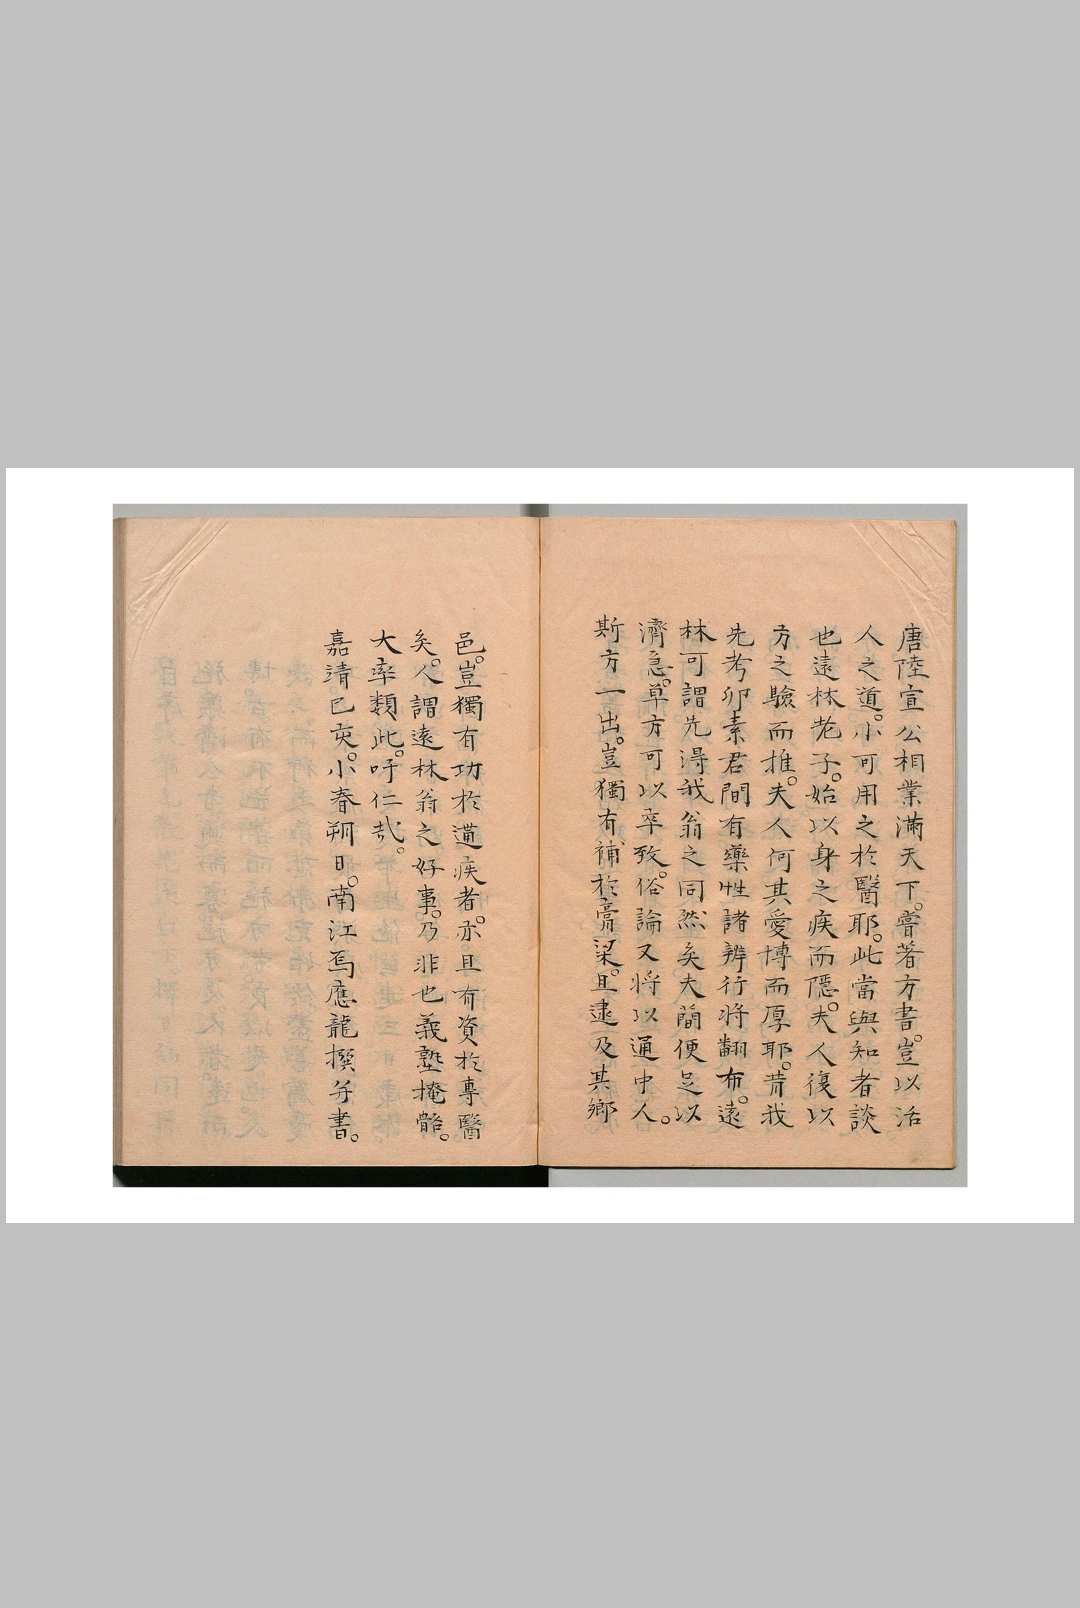 唐陸宣公相業滿天下。嘗著方書。豈以活
人之道。小可用之於醫耶。此當與知者談
也。遠林老子。始以身之疾而隱。夫人復以
方之驗而推。夫人何其愛博而厚耶。昔我
先考卯素君間有藥性諸辨行將翻布。遠
林可謂先得我翁之同然矣夫簡便足以
濟急。草方可以卒致。俗論又將以通中人。
斯方一出。豈獨有補於膏粱。且逮及其鄉
邑。豈獨有功於遘疾者。亦且有資於專醫
矣。人謂遠林翁之好事。乃非也義塾掩骼。
大率類此。吁仁哉。
嘉清巳亥。小春朔日。南江馮應龍撰并書。